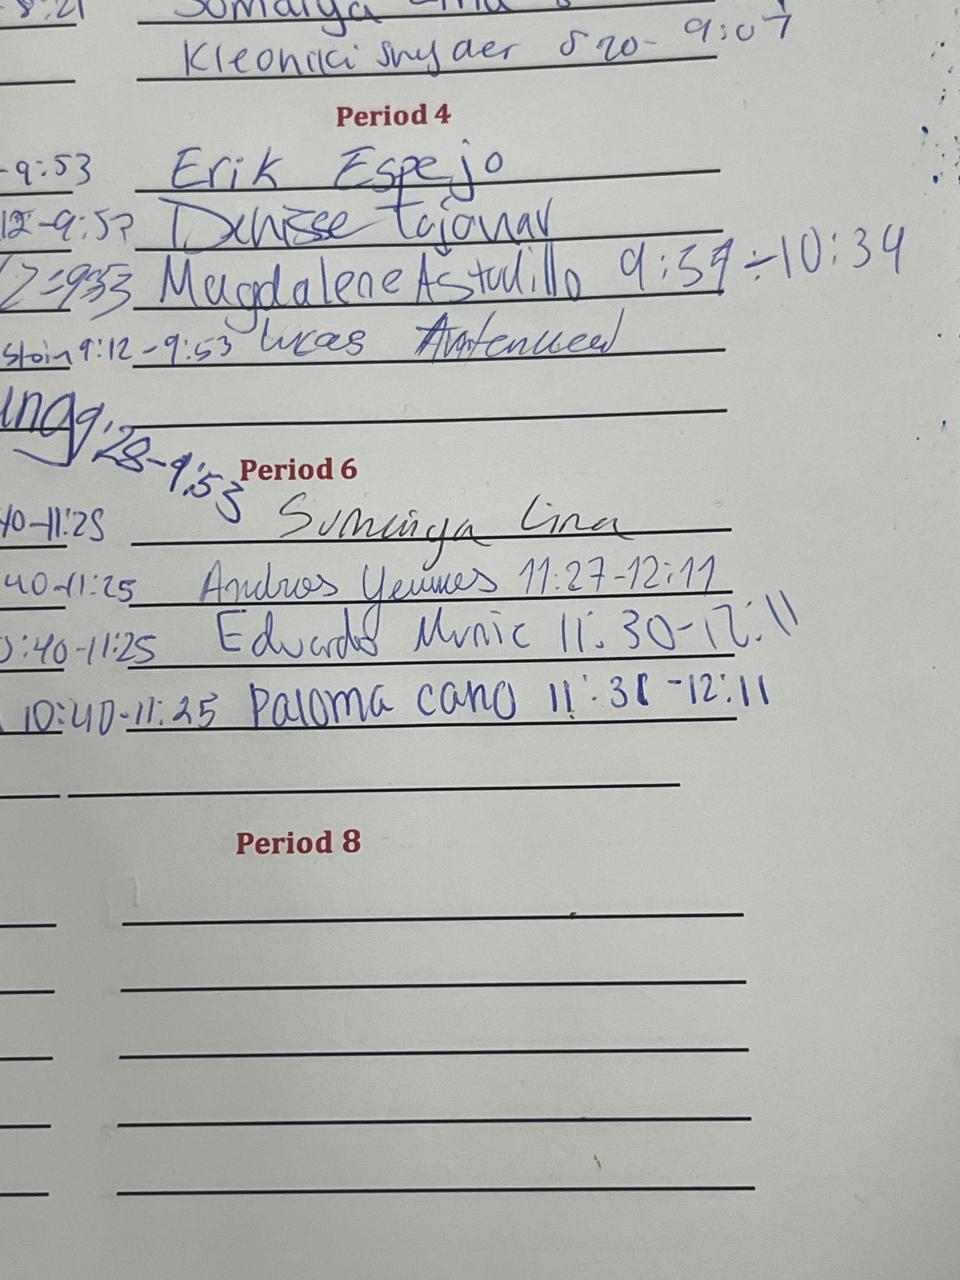 8:21 Somaiya
Kleoniki Snyder 8 20- 9:07
Period 4
-9:53 Erik Espejo
12-9:53 Denisse Tajonar
12-9:53 Magdalene Astudillo 9:59-10:34
stoin 9:12-9:53 Lucas
9:28-9:53
Period 6
40-11:25 Sumaiya Lina
40-11:25 Andres 11:27-12:11
0:40-11:25 Eduardo 11:30-12:11
10:40-11:25 Paloma cano 11:38-12:11
Period 8